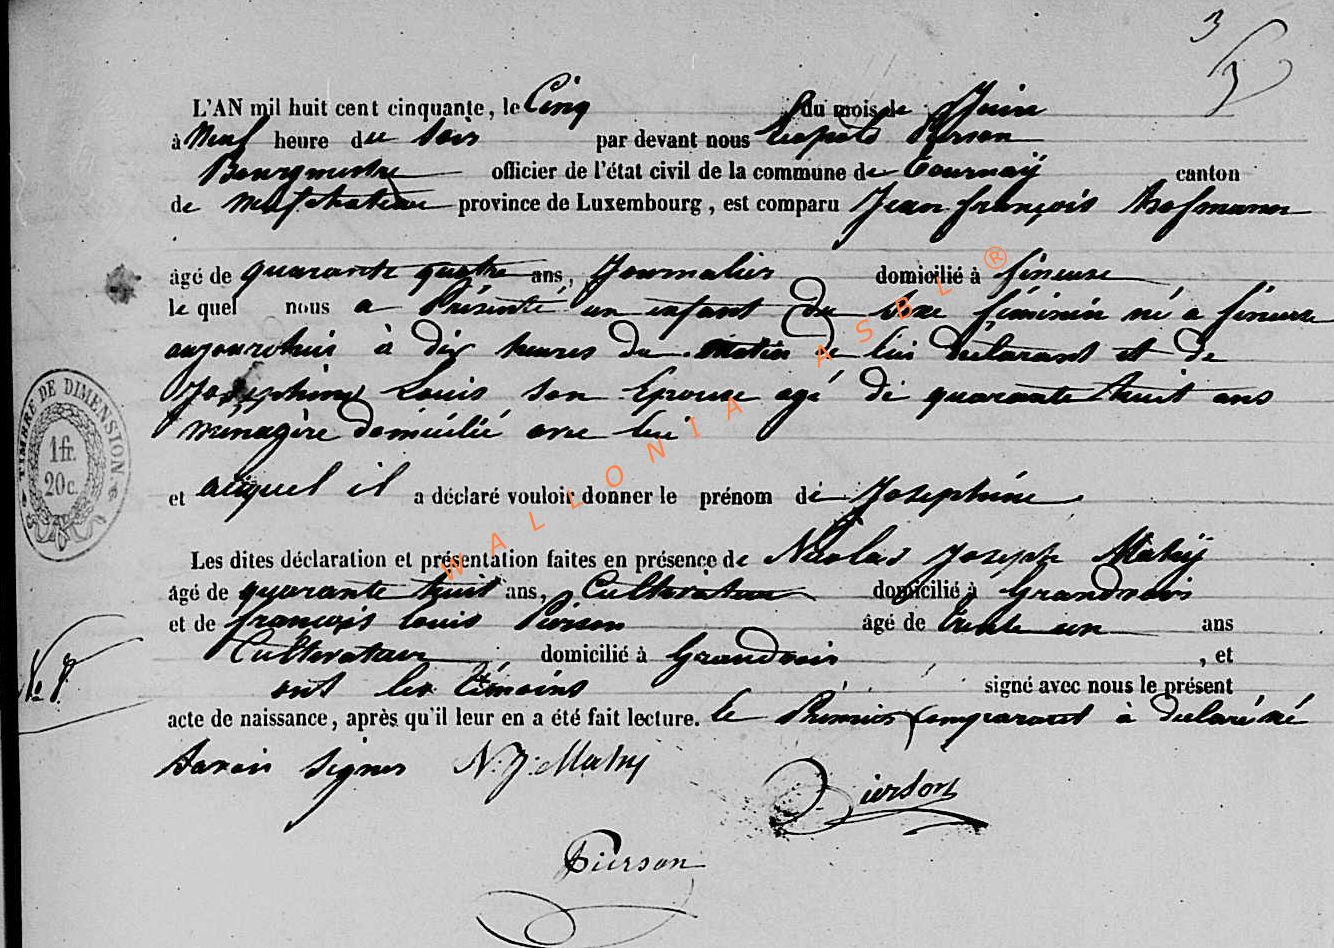 3
L'AN mil huit cent cinquante, le Cinq du mois de Juin
à Neuf heure du soir par devant nous Léopold Pierson
Bourgmestre officier de l'état civil de la commune de Tournaÿ canton
de Neufchateau province de Luxembourg, est comparu Jean françois Hofmann
âgé de quarante quatre ans, Journalier domicilié à fineuse
le quel nous a Présenté un enfant du sexe féminin né a fineuse
aujourdhui à dix heures du matin de lui declarant et de
Joséphine Louis son Epouse agé de quarante huit ans
menagère domicilié avec lui
et auquel il a déclaré vouloir donner le prénom de Josephine
Les dites déclaration et présentation faites en présence de Nicolas Joseph Mahÿ
âgé de quarante huit ans, Cultivateur domicilié à Grandvoir
et de françois Louis Pierson âgé de trente un ans
Cultivateur domicilié à Grandvoir , et
ont les témoins signé avec nous le présent
acte de naissance, après qu'il leur en a été fait lecture. le Prémier Comparant à declaré né
Savoir Signer N. J. Mahy
Pierson
Pierson
TIMBRE DE DIMENSION
1 fr.
20 c.
No 7.
WALLONIA ASBL ®